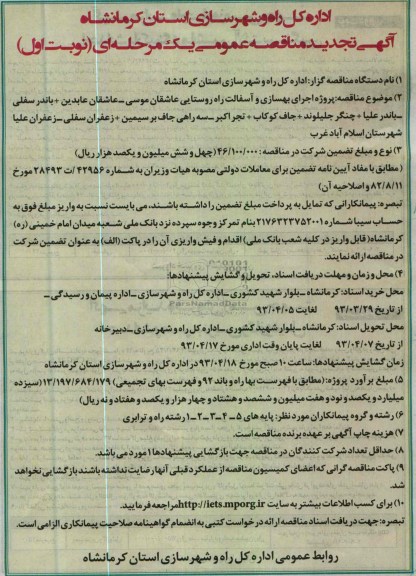 اداره کل راه و شهرسازی استان کرمانشاه
آگهی تجدید مناقصه عمومی یک مرحله ای (نوبت اول)
۱) نام دستگاه مناقصه گزار: اداره کل راه و شهرسازی استان کرمانشاه
۲) موضوع مناقصه: پروژه اجرای بهسازی و آسفالت راه روستایی عاشقان موسی _ عاشقان عابدین + باندر سفلی
_ باندر علیا + چنگر جلیلوند + جاف کوکاب + نجر اکبر _ سه راهی جاف بر سیمین + زعفران سفلی _ زعفران علیا
شهرستان اسلام آباد غرب
۳) نوع و مبلغ تضمین شرکت در مناقصه: ۴۶/۱۰۰/۰۰۰ (چهل و شش میلیون و یکصد هزار ریال)
(مطابق با مفاد آیین نامه تضمین برای معاملات دولتی مصوبه هیات وزیران به شماره ۴۲۹۵۶/ت ۲۸۴۹۳ مورخ
۸۲/۸/۱۱ و اصلاحیه آن)
تبصره: پیمانکارانی که تمایل به پرداخت مبلغ تضمین را داشته باشند، می بایست نسبت به واریز مبلغ فوق به
حساب سیبا شماره ۲۱۷۶۳۲۳۷۵۲۰۰۱ بنام تمرکز وجوه سپرده نزد بانک ملی شعبه میدان امام خمینی (ره)
کرمانشاه (قابل واریز در کلیه شعب بانک ملی) اقدام و فیش واریزی آن را در پاکت (الف) به عنوان تضمین شرکت
در مناقصه ارائه نمایند.
۴) محل و زمان و مهلت دریافت اسناد، تحویل و گشایش پیشنهادها:
محل خرید اسناد: کرمانشاه _ بلوار شهید کشوری _ اداره کل راه و شهرسازی _ اداره پیمان و رسیدگی _
از تاریخ ۹۳/۰۳/۲۹ لغایت ۹۳/۰۴/۰۵
محل تحویل اسناد: کرمانشاه _ بلوار شهید کشوری _ اداره کل راه و شهرسازی _ دبیرخانه
از تاریخ ۹۳/۰۴/۰۷ لغایت پایان وقت اداری مورخ ۹۳/۰۴/۱۷
زمان گشایش پیشنهادها: ساعت ۱۰ صبح مورخ ۹۳/۰۴/۱۸ در اداره کل راه و شهرسازی استان کرمانشاه
۵) مبلغ برآورد پروژه: (مطابق با فهرست بها راه و باند ۹۲ و فهرست بهای تجمیعی) ۱۳/۱۹۷/۶۸۴/۱۷۹ (سیزده
میلیارد و یکصد و نود و هفت میلیون و ششصد و هشتاد و چهار هزار ریال و یکصد و هفتاد و نه ریال)
۶) رشته و گروه پیمانکاران مورد نظر: پایه های ۵_۴_۳_۲_۱ رشته راه و ترابری
۷) هزینه چاپ آگهی بر عهده برنده مناقصه است.
۸) حداقل تعداد شرکت کنندگان در مناقصه جهت بازگشایی پیشنهادها ۱ مورد می باشد.
۹) پاکت مناقصه گرانی که اعضای کمیسیون مناقصه از عملکرد قبلی آنها رضایت نداشته باشند بازگشایی نخواهد
شد.
۱۰) برای کسب اطلاعات بیشتر به سایت http://iets.mporg.ir مراجعه فرمایید.
تبصره: جهت دریافت اسناد مناقصه ارائه درخواست کتبی به انضمام گواهینامه صلاحیت پیمانکاری الزامی است.
روابط عمومی اداره کل راه و شهرسازی استان کرمانشاه